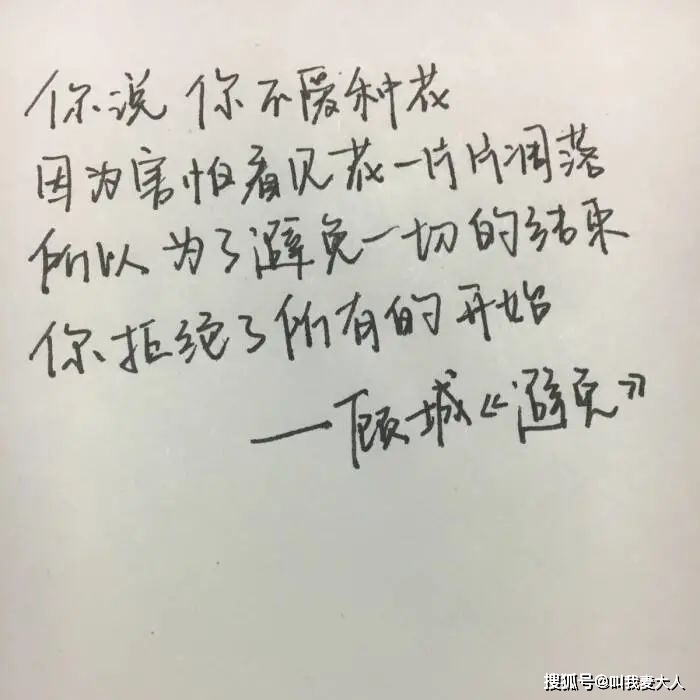 你说 你不爱种花
因为害怕看见花一片片凋落
所以为了避免一切的结束
你拒绝了所有的开始
—顾城《避免》
搜狐号@叫我妻大人